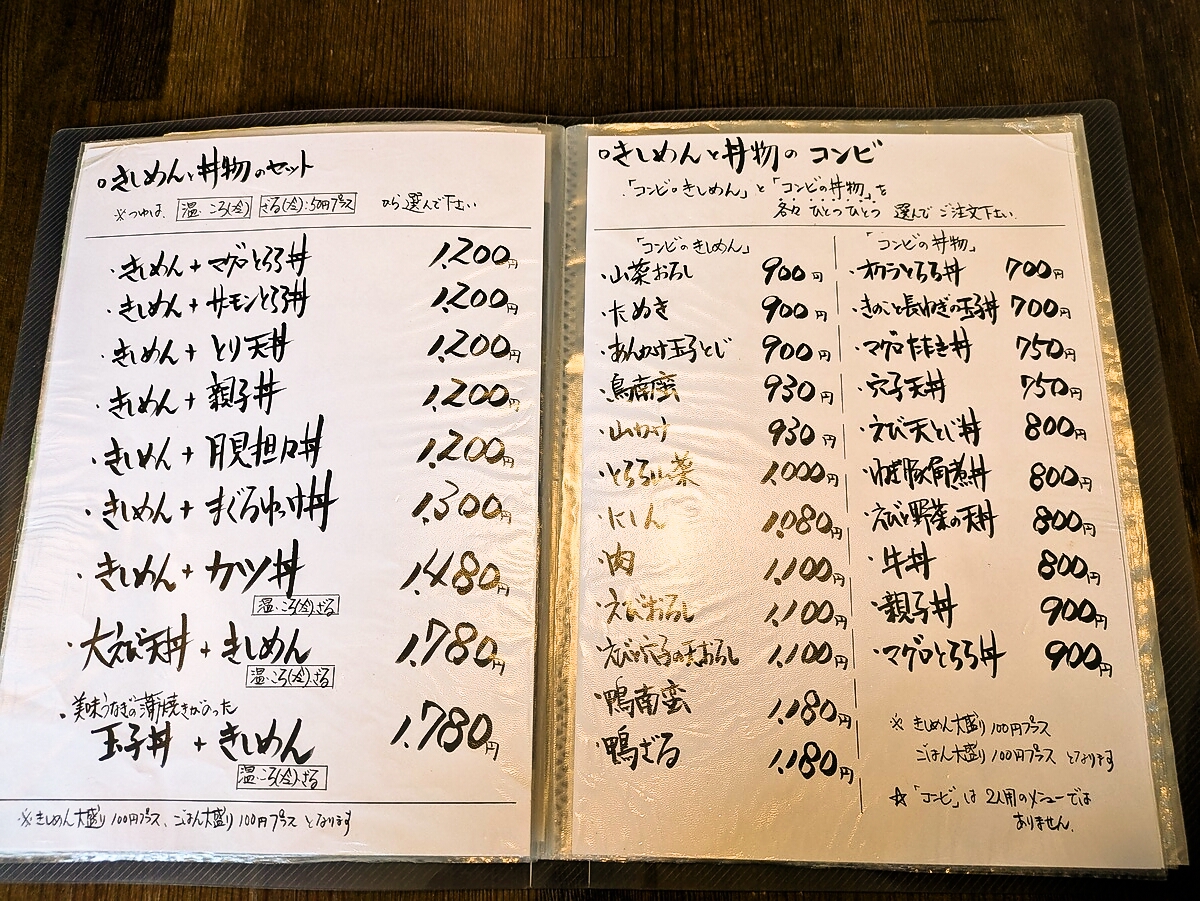 ◦きしめんと丼物のセット
※つゆは、温・ころ(冷) ざる(冷):50円プラス から選んで下さい
・きしめん+マグロとろろ丼 1,200円
・きしめん+サーモンとろろ丼 1,200円
・きしめん+とり天丼 1,200円
・きしめん+親子丼 1,200円
・きしめん+月見担々丼 1,200円
・きしめん+まぐろゆっけ丼 1,300円
・きしめん+カツ丼 1,480円
温・ころ(冷)、ざる
・大えび天丼+きしめん 1,780円
温・ころ(冷)、ざる
・美味うなぎの蒲焼きがのった
玉子丼+きしめん 1,780円
温・ころ(冷)、ざる
※きしめん大盛り100円プラス、ごはん大盛り100円プラスとなります
◦きしめんと丼物のコンビ
「コンビのきしめん」と「コンビの丼物」を
各々ひとつひとつ選んでご注文下さい。
「コンビのきしめん」
・山菜おろし 900円
・たぬき 900円
・あんかけ玉子とじ 900円
・鳥南蛮 930円
・山かけ 930円
・とろろ山菜 1,000円
・にしん 1,080円
・肉 1,100円
・えびおろし 1,100円
・えびと穴子の天おろし 1,100円
・鴨南蛮 1,180円
・鴨ざる 1,180円
「コンビの丼物」
・オクラとろろ丼 700円
・きのこと長ねぎの玉子丼 700円
・マグロたたき丼 750円
・穴子天丼 750円
・えび天とじ丼 800円
・ねぎ豚角煮丼 800円
・えびと野菜の天丼 800円
・牛丼 800円
・親子丼 900円
・マグロとろろ丼 900円
※きしめん大盛り100円プラス
ごはん大盛り100円プラスとなります
☆「コンビ」は2人用のメニューでは
ありません。